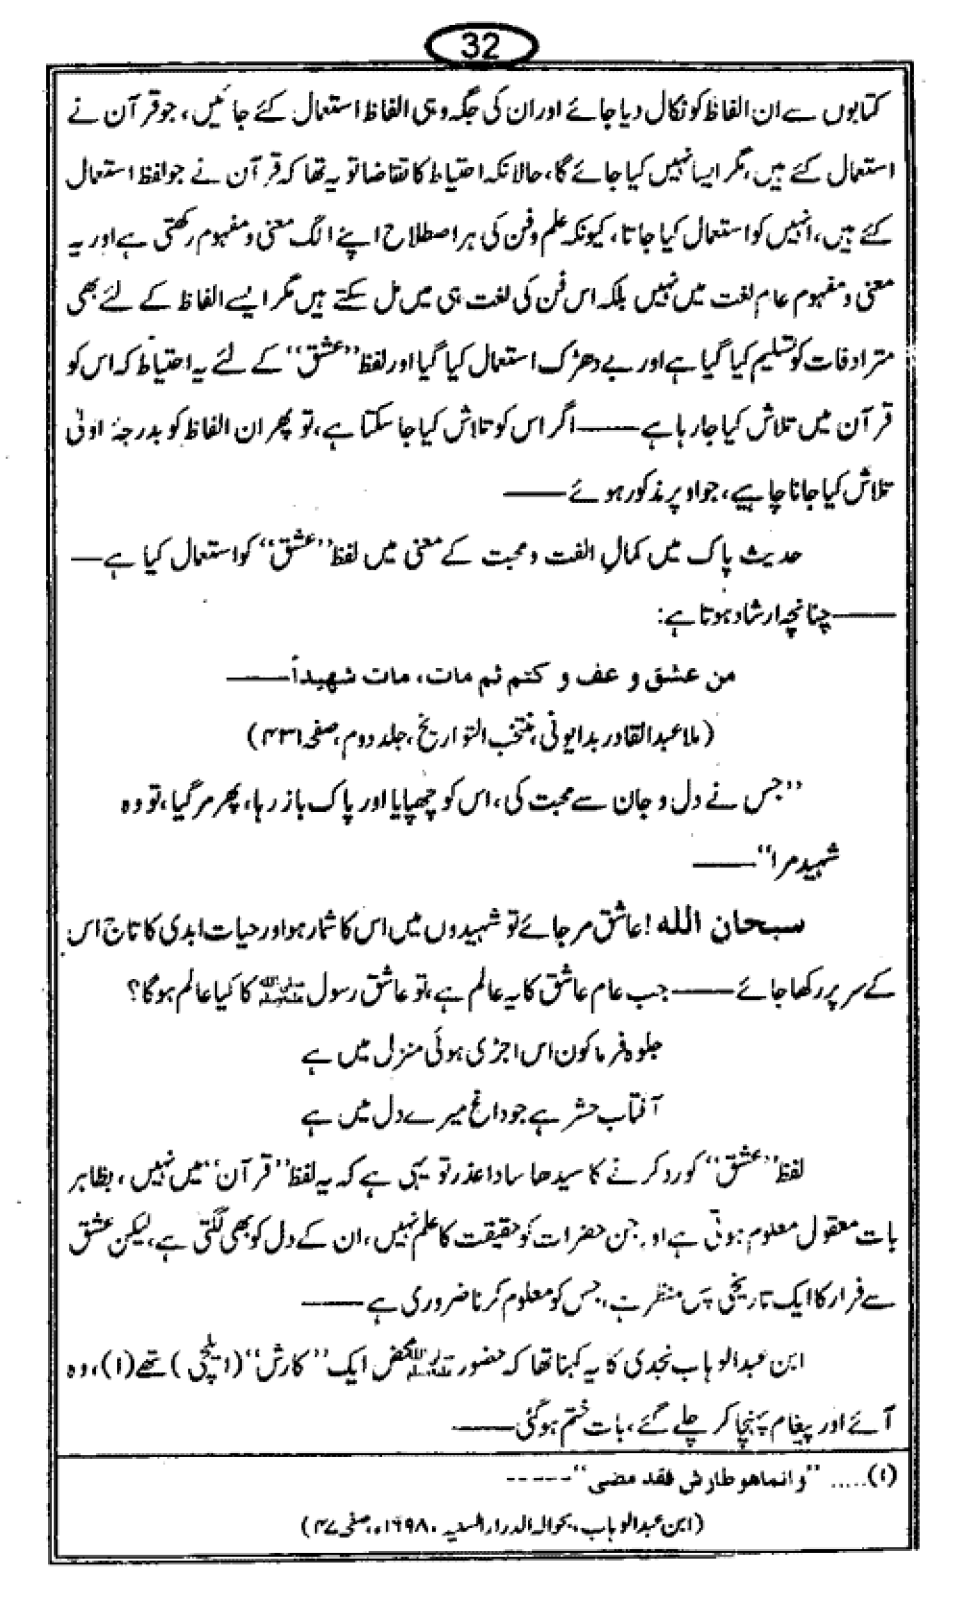 32
کتابوں سے ان الفاظ کو نکال دیا جائے اور ان کی جگہ وہی الفاظ استعمال کئے جائیں، جو قرآن نے
استعمال کئے ہیں، مگر ایسا نہیں کیا جائے گا، حالانکہ احتیاط کا تقاضا تو یہ تھا کہ قرآن نے جو لفظ استعمال
کئے ہیں، انہیں کو استعمال کیا جاتا، کیونکہ علم و فن کی ہر اصطلاح اپنے الگ معنی و مفہوم رکھتی ہے اور یہ
معنی و مفہوم عام لغت میں نہیں بلکہ اس فن کی لغت ہی میں مل سکتے ہیں مگر ایسے الفاظ کے لئے بھی
مترادفات کو تسلیم کیا گیا ہے اور بے دھڑک استعمال کیا گیا اور لفظ ”عشق“ کے لئے یہ احتیاط کہ اس کو
قرآن میں تلاش کیا جا رہا ہے —— اگر اس کو تلاش کیا جا سکتا ہے، تو پھر ان الفاظ کو بدرجۂ اولیٰ
تلاش کیا جانا چاہیے، جو اوپر مذکور ہوئے ——
حدیث پاک میں کمالِ الفت و محبت کے معنی میں لفظ ”عشق“ کو استعمال کیا ہے —
—— چنانچہ ارشاد ہوتا ہے:
من عشق و عف و کتم ثم مات، مات شھیداً ——
(ملا عبدالقادر بدایونی، منتخب التواریخ، جلد دوم، صفحہ ۴۳۱)
”جس نے دل و جان سے محبت کی، اس کو چھپایا اور پاک باز رہا، پھر مر گیا، تو وہ
شہید مرا“ ——
سبحان اللہ! عاشق مر جائے تو شہیدوں میں اس کا شمار ہو اور حیات ابدی کا تاج اس
کے سر پر رکھا جائے —— جب عام عاشق کا یہ عالم ہے، تو عاشق رسول ﷺ کا کیا عالم ہو گا؟
جلوہ فرما کون اس اجڑی ہوئی منزل میں ہے
آفتاب حشر ہے جو داغ میرے دل میں ہے
لفظ ”عشق“ کو رد کرنے کا سیدھا سادا عذر تو یہی ہے کہ یہ لفظ ”قرآن“ میں نہیں، بظاہر
بات معقول معلوم ہوتی ہے اور جن حضرات کو حقیقت کا علم نہیں، ان کے دل کو بھی لگتی ہے، لیکن عشق
سے فرار کا ایک تاریخی پس منظر ہے، جس کو معلوم کرنا ضروری ہے ——
ابن عبدالوہاب نجدی کا یہ کہنا تھا کہ حضور ﷺ محض ایک ”کارش“ (ایلچی) تھے (۱)، وہ
آئے اور پیغام پہنچا کر چلے گئے، بات ختم ہوگئی ——
(۱)..... ”وانماھو طارش فقد مضی“-----
(ابن عبدالوہاب، بحوالہ الدرار السنیہ، ۱۶۹۸ء، صفحہ ۴۷)